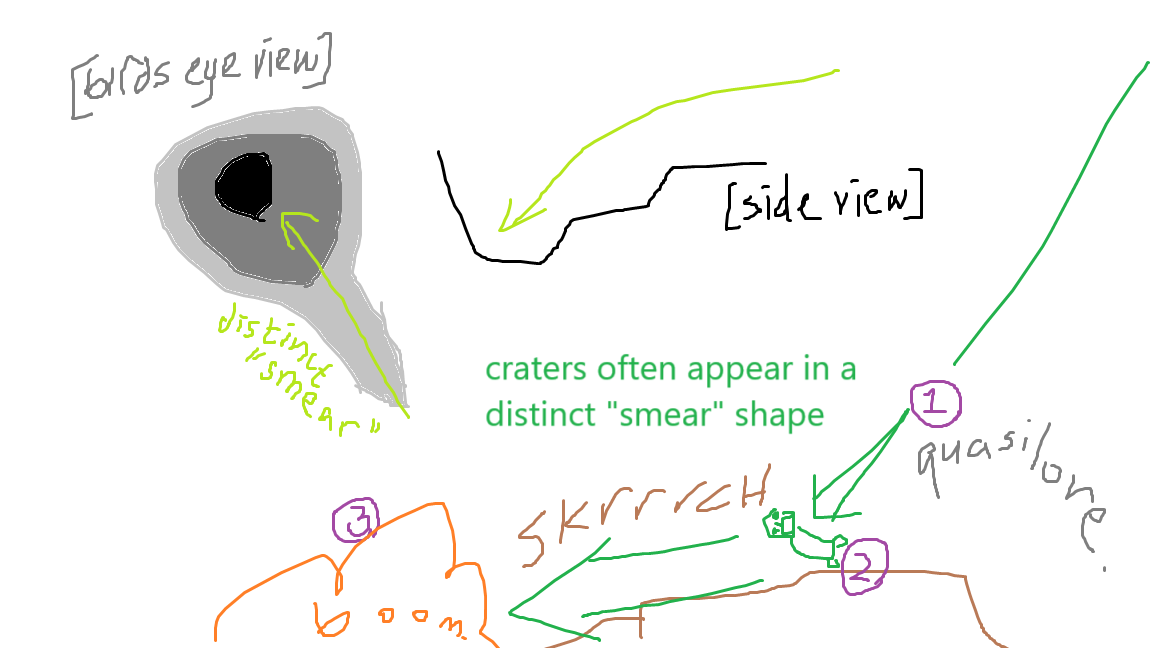 [birds eye view]
[side view]
distinct
"smear"
craters often appear in a
distinct "smear" shape
1
quasilore.
SKRRRCH
2
3
boom.